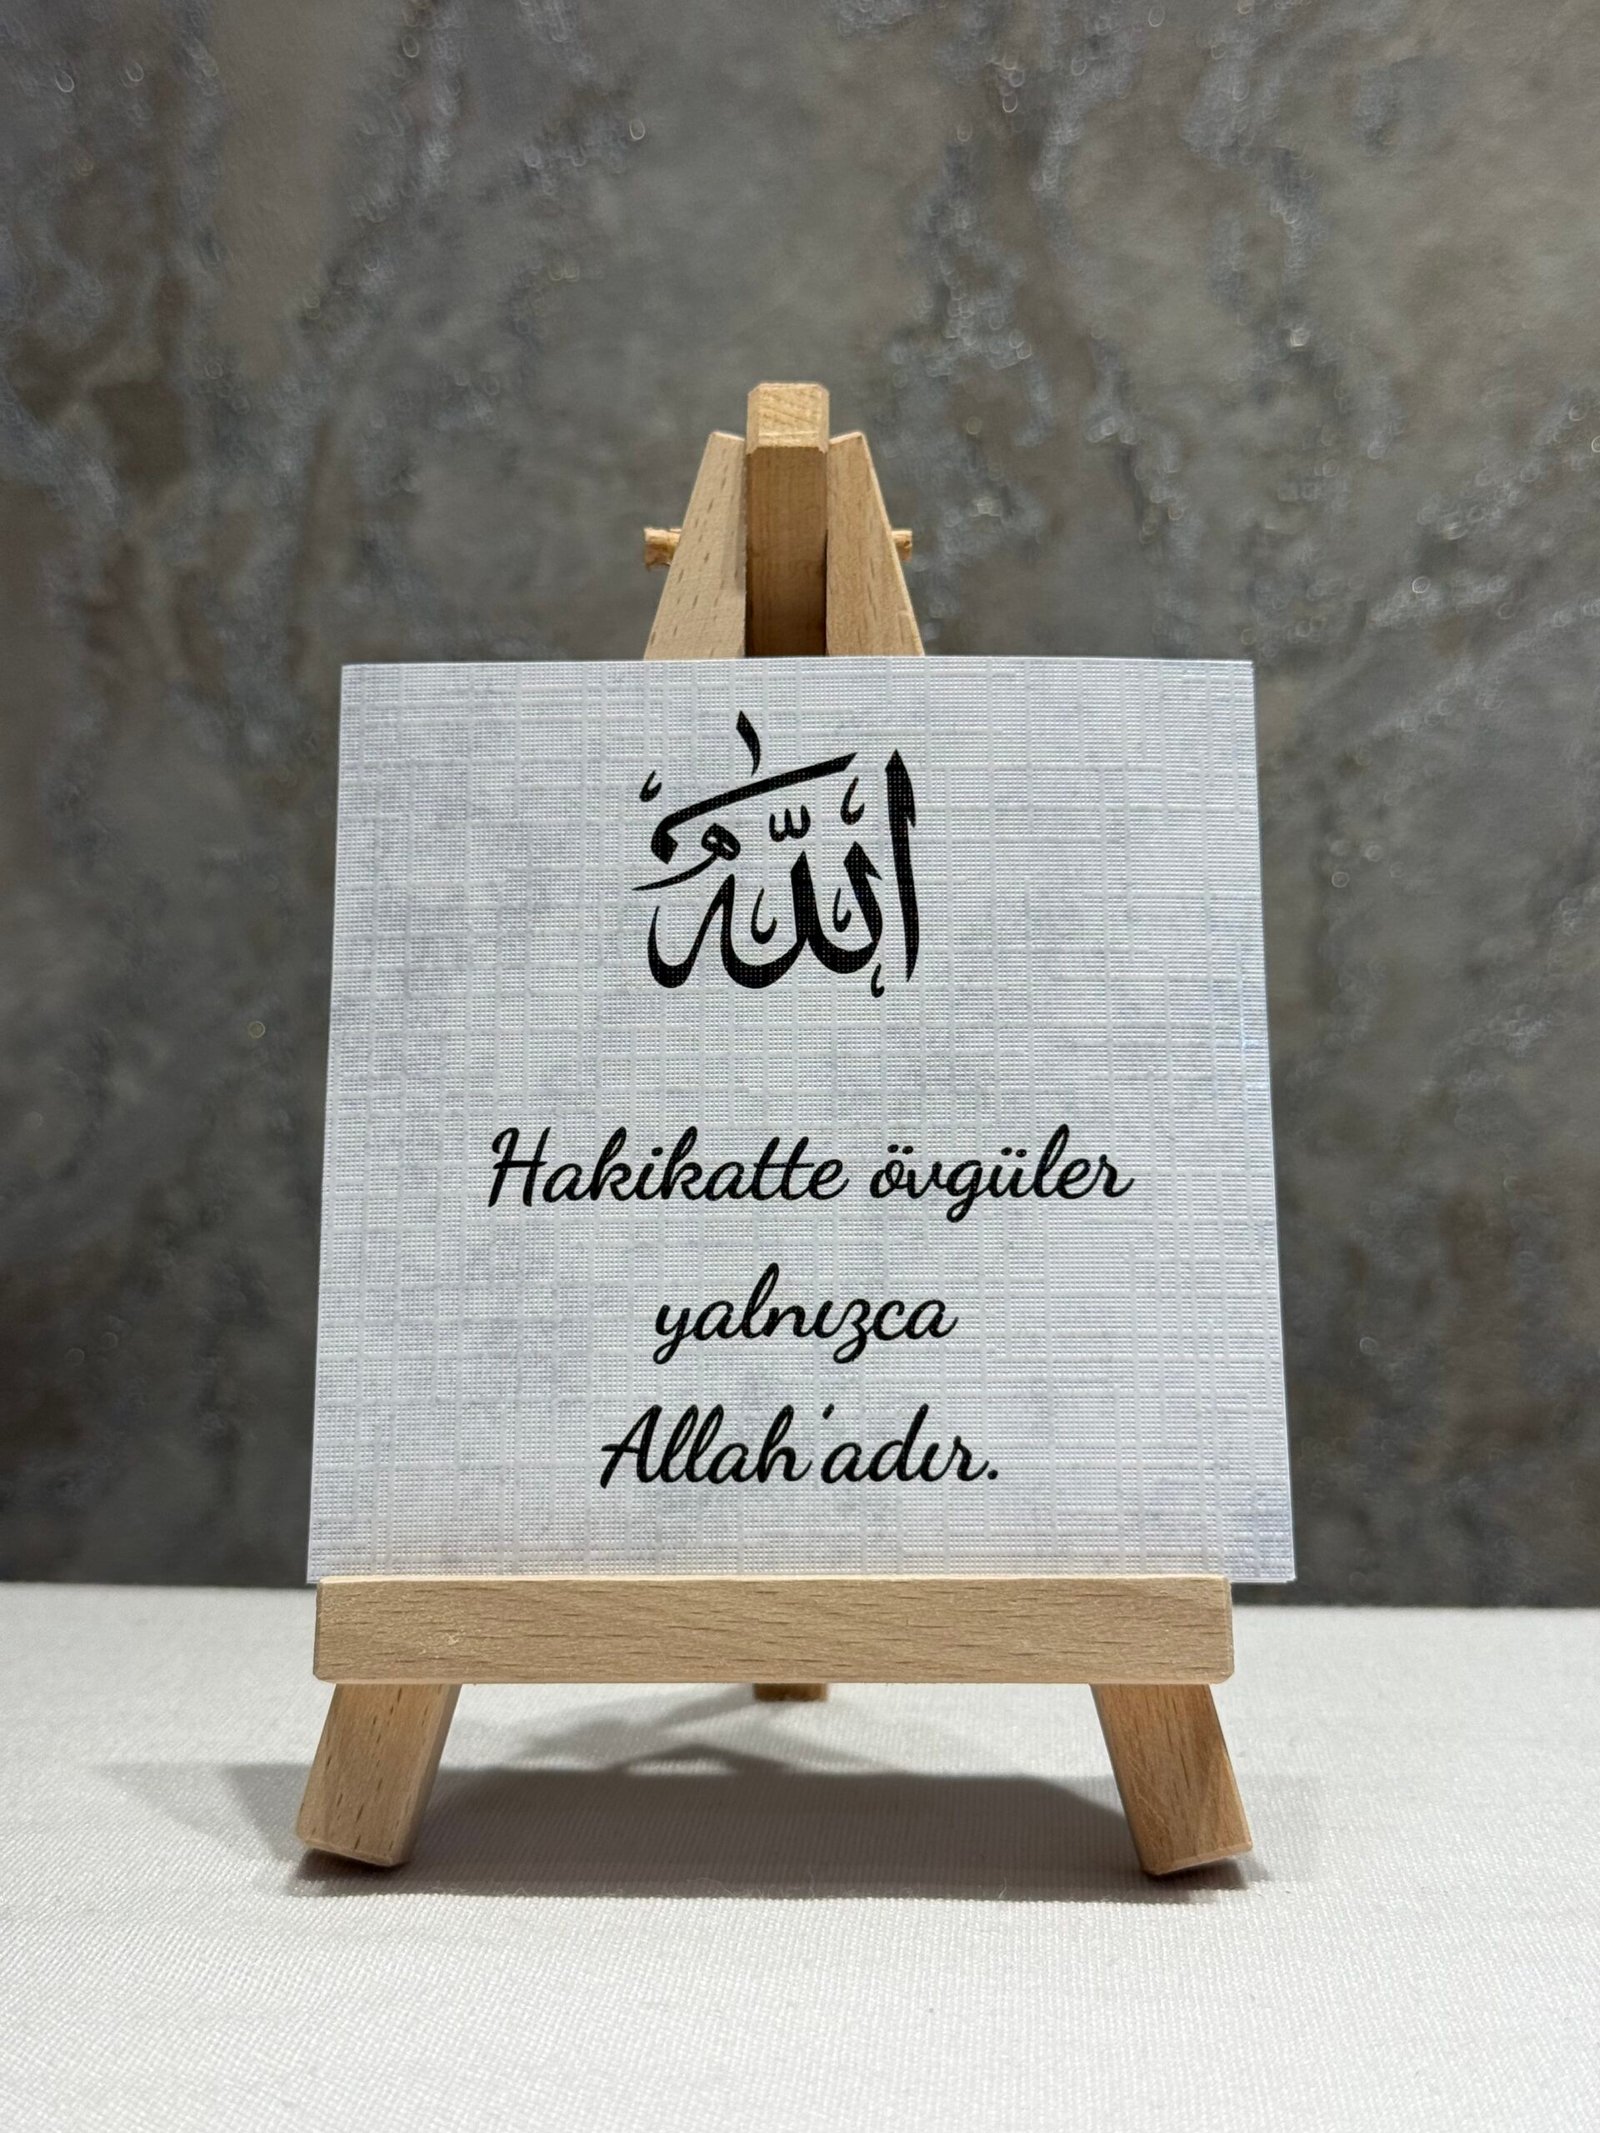 الله
Hakikatte övgüler
yalnızca
Allah'adır.